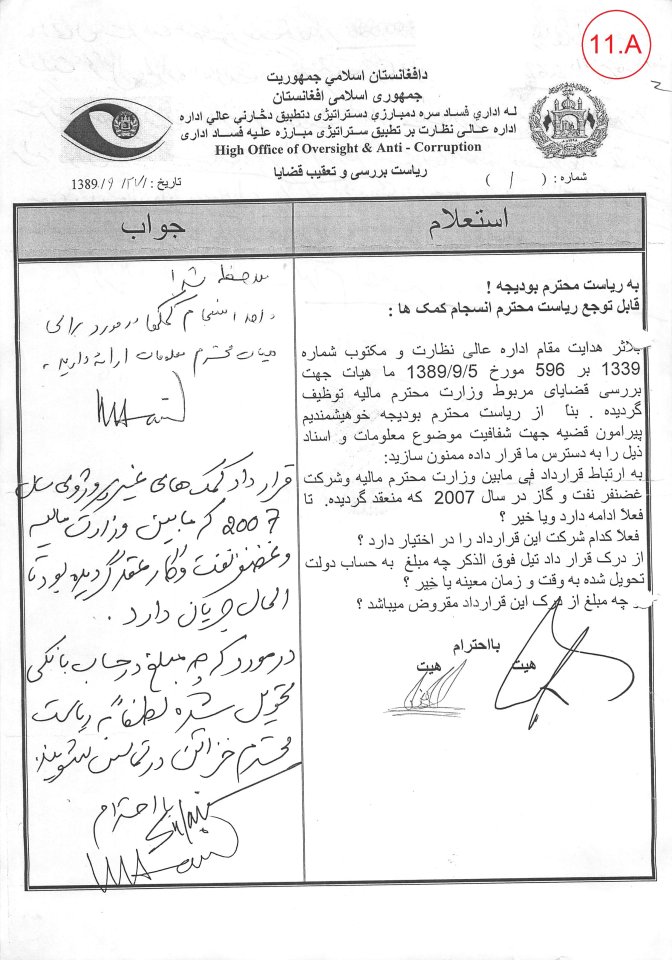 11.A
دافغانستان اسلامي جمهوریت
جمهوری اسلامی افغانستان
له اداري فساد سره دمبارزې دستراتیژی دتطبیق دڅارنې عالي اداره
اداره عالی نظارت بر تطبیق ستراتیژی مبارزه علیه فساد اداری
High Office of Oversight & Anti - Corruption
ریاست بررسی و تعقیب قضایا
شماره : ( 1 )
تاریخ : 1389/9/21
استعلام
به ریاست محترم بودیجه !
قابل توجع ریاست محترم انسجام کمک ها :
بلاثر هدایت مقام اداره عالی نظارت و مکتوب شماره
1339 بر 596 مورخ 1389/9/5 ما هیات جهت
بررسی قضایای مربوط وزارت محترم مالیه توظیف
گردیده . بنأ از ریاست محترم بودیجه خوهیشمندیم
پیرامون قضیه جهت شفافیت موضوع معلومات و اسناد
ذیل را به دسترس ما قرار داده ممنون سازید:
به ارتباط قرارداد فی مابین وزارت محترم مالیه وشرکت
غضنفر نفت و گاز در سال 2007 که منعقد گردیده. تا
فعلا ادامه دارد ویا خیر ؟
فعلا کدام شرکت این قرارداد را در اختیار دارد ؟
از درک قرار داد تیل فوق الذکر چه مبلغ به حساب دولت
تحویل شده به وقت و زمان معینه یا خیر ؟
چه مبلغ از درک این قرارداد مقروض میباشد ؟
بااحترام
هیت
هیت
جواب
ملاحظه شد
انسجام کمکها در مورد برای
هیات محترم معلومات ارائه دارید .
قرار داد کمک های غیر پروژوی سال
2007 که مابین وزارت مالیه
و غضنفر نفت و گاز عقد گردیده بود تا
الحال جریان دارد .
در مورد که چه مبلغ در حساب بانکی
تحویل شده لطفاً به ریاست
محترم خزائن در تماس شوید.
با احترام